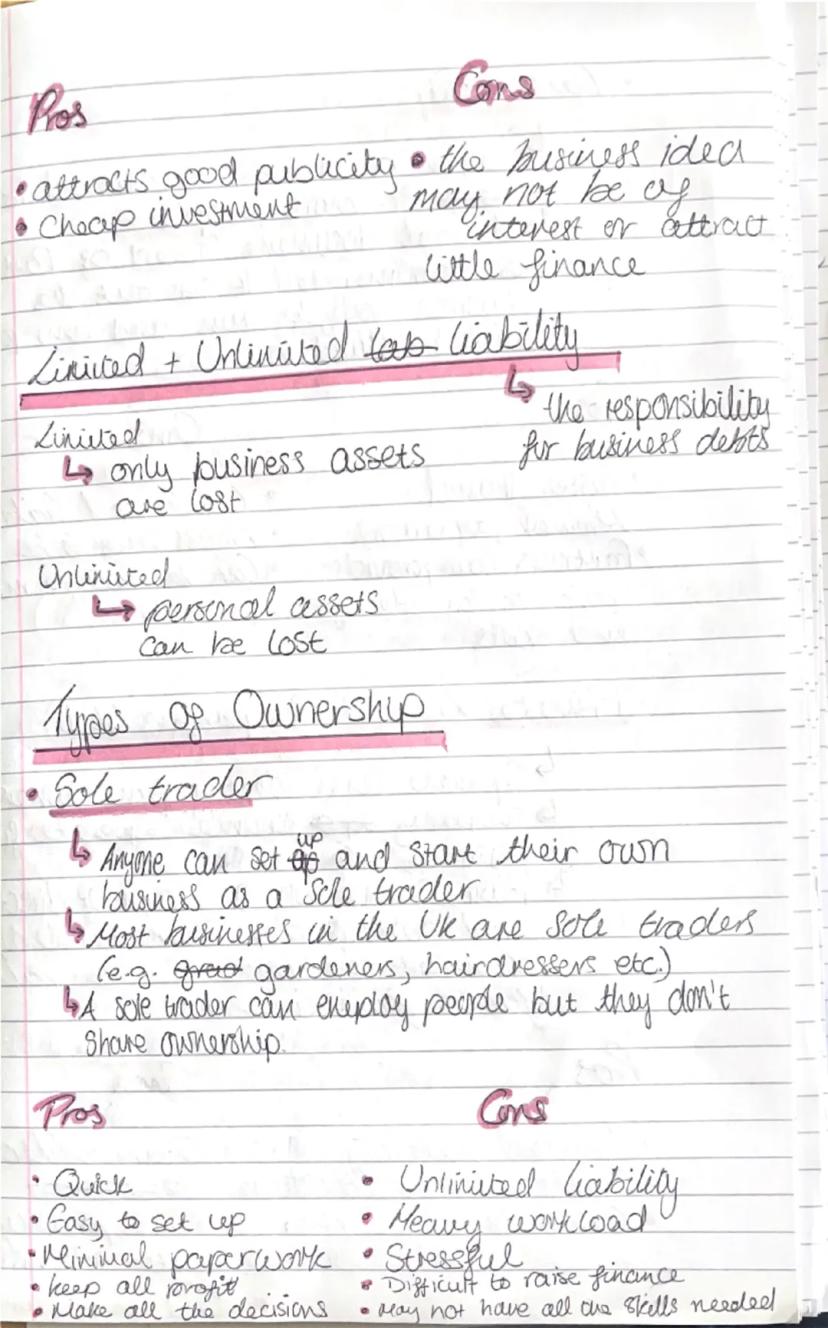 Pros
Cons
• attracts good publicity
• Cheap investment
• the business idea
may not be of
interest or attract
little finance
Limited + Unlimited liability
↳ the responsibility
for business debts
Limited
↳ only business assets
are lost
Unlimited
↳ personal assets
can be lost
Types of Ownership
• Sole trader
↳ Anyone can set up and start their own
business as a sole trader
↳ Most businesses in the UK are sole traders
(e.g. gardeners, hairdressers etc.)
↳ A sole trader can employ people but they don't
share ownership.
Pros
Cons
• Quick
• Easy to set up
• Minimal paperwork
• keep all profit
• Make all the decisions
• Unlimited liability
• Heavy workload
• Stressful
• Difficult to raise finance
• May not have all the skills needed